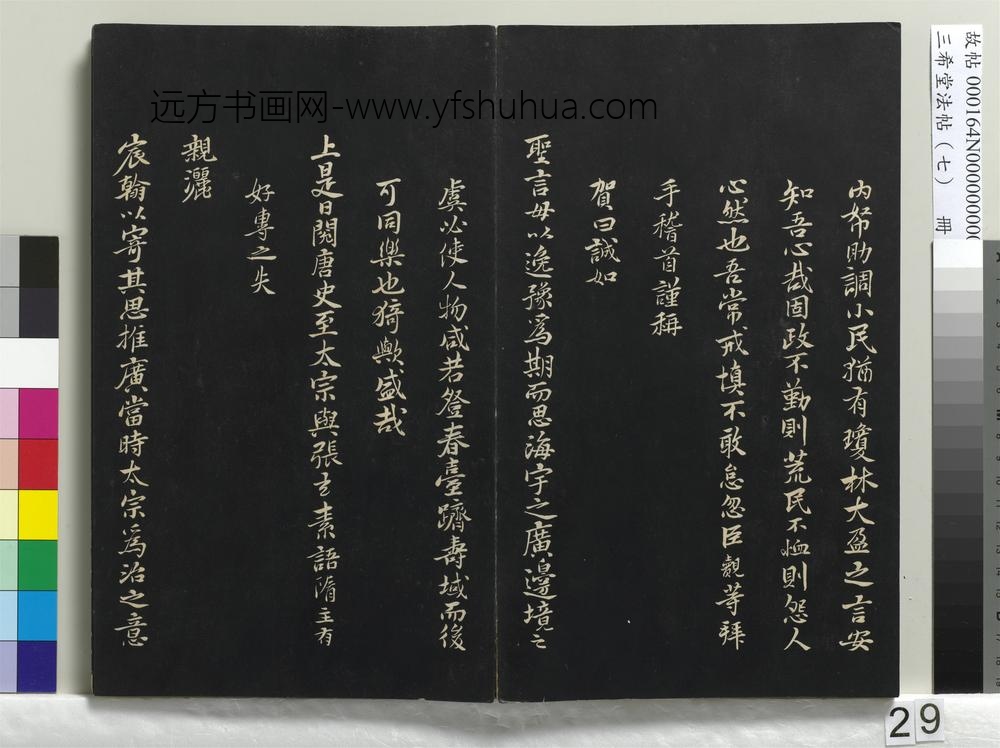 内帑助調小民猶有瓊林大盈之言安
知吾心哉固政不勤則荒民不恤則怨人
心然也吾常戒慎不敢怠忽臣覿等拜
手稽首謹稱
賀曰誠如
聖言毋以逸豫為期而思海宇之廣邊境之
虞必使人物咸若登春臺躋壽域而後
可同樂也猗歟盛哉
上是日閱唐史至太宗與張玄素語隋主有
好專之失
親灑
宸翰以寄其思推廣當時太宗為治之意
远方书画网-www.yfshuhua.com
故帖 000164N000000000
三希堂法帖(七) 冊
29